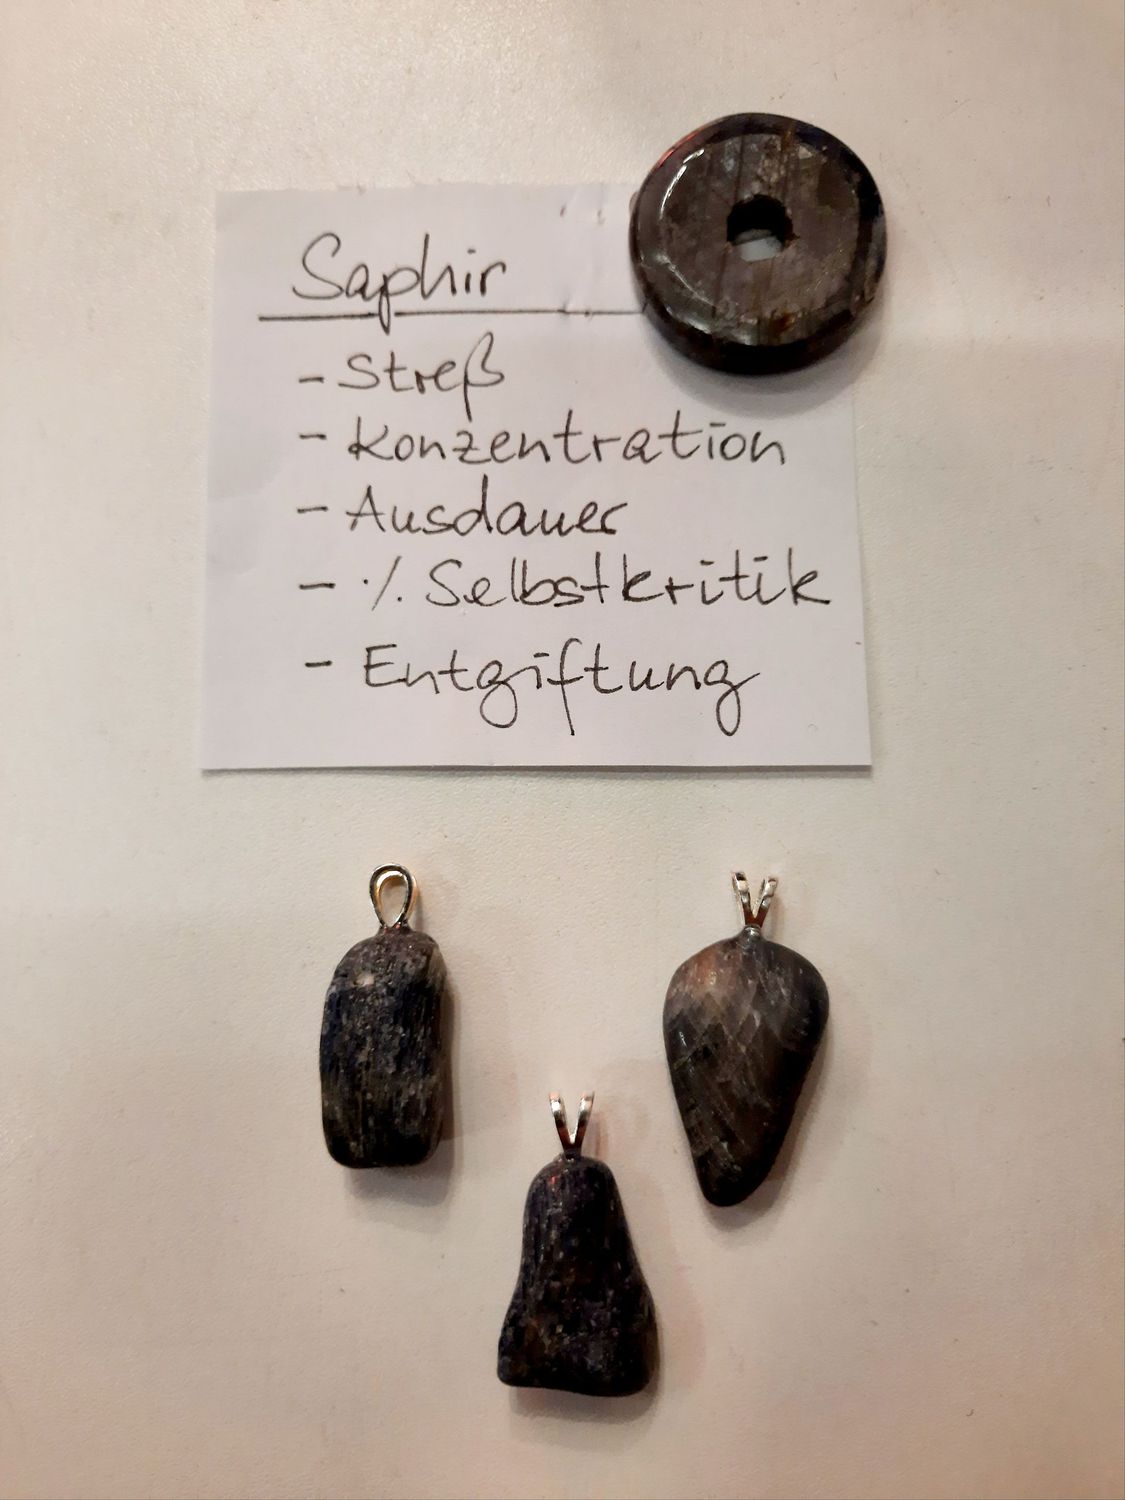 Saphir
- Streß
- Konzentration
- Ausdauer
- ·/. Selbstkritik
- Entgiftung